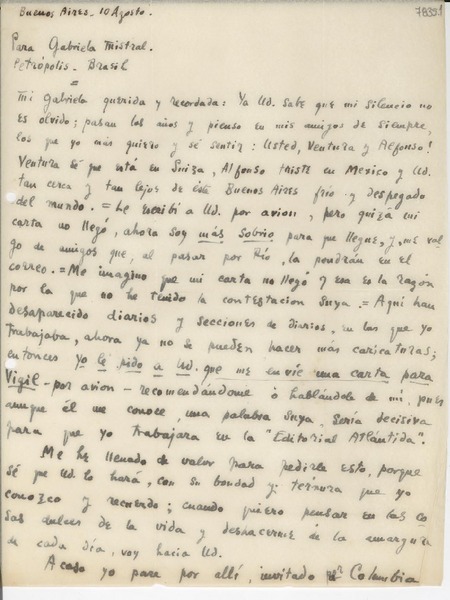 Buenos Aires - 10 Agosto.
78391
Para Gabriela Mistral.
Petrópolis - Brasil
=
Mi Gabriela querida y recordada: Ya Ud. sabe que mi silencio no
es olvido; pasan los años y pienso en mis amigos de siempre,
los que yo más quiero y sé sentir: Usted, Ventura y Alfonso!
Ventura sé que está en Suiza, Alfonso triste en Mexico y Ud.
tan cerca y tan lejos de este Buenos Aires frío y despegado
del mundo. = Le escribí a Ud. por avion, pero quizá mi
carta no llegó, ahora soy más sobrio para que llegue, y, me val-
go de amigos que, al pasar por Río, la pondrán en el
correo. = Me imagino que mi carta no llegó y esa es la razón
por la que no he tenido la contestacion suya. = Aquí han
desaparecido diarios y secciones de diarios, en las que yo
trabajaba, ahora ya no se pueden hacer más caricaturas;
entonces yo le pido a Ud. que me envíe una carta para
Vigil - por avion - recomendándome ó hablándole de mi, pues
aunque él me conoce, una palabra suya, sería decisiva
para que yo trabajara en la "Editorial Atlántida".
Me he llenado de valor para pedirle esto, porque
sé que Ud. lo hará, con su bondad y ternura que yo
conozco y recuerdo; cuando quiero pensar en las co-
sas dulces de la vida y deshacerme de la amargura
de cada día, voy hacia Ud.
Acaso yo pase por allí, invitado por Colombia